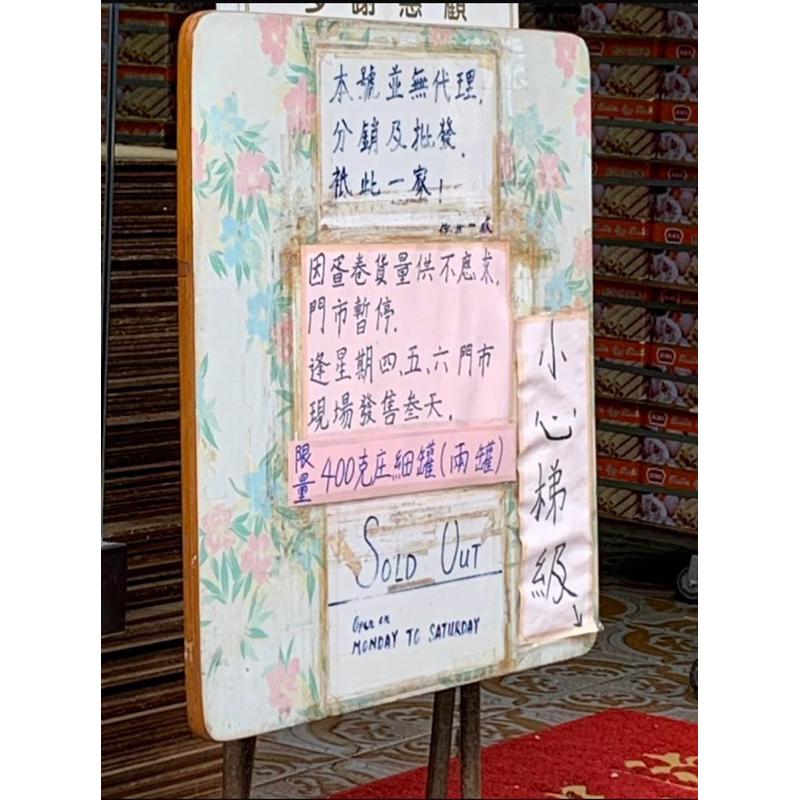 多謝惠顧
本號並無代理,
分銷及批發.
祗此一家!
因蛋卷貨量供不應求,
門市暫停.
逢星期四、五、六門市
現場發售叁天.
限量 400克庄細罐(兩罐)
SOLD OUT
Open on
MONDAY TO SATURDAY
小心梯級